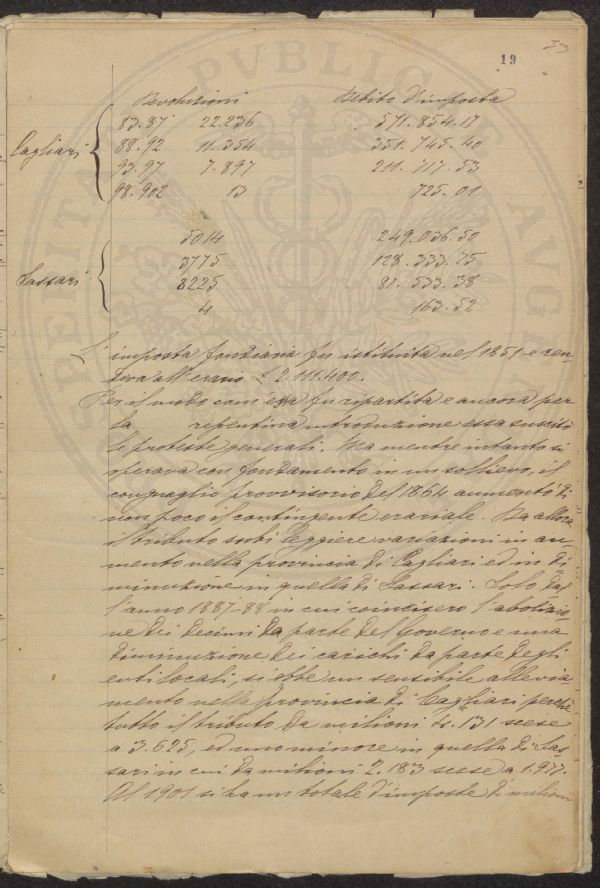 19
33
Devoluzioni Debito d'imposta
Cagliari
83.87 22.236 571.854.17
88.92 11.354 351.745.40
93.97 7.897 211.717.53
98.902 13 725.01
Sassari
5014 249.036.50
3775 128.333.75
3225 81.533.38
4 163.52
L'imposta fondiaria fu istituita nel 1851 e ren-
deva all'erario £ 2.111.400.
Per il modo com'essa fu ripartita e ancora per
la repentina introduzione essa suscitò
le proteste generali. Ma mentre intanto si
sperava con fondamento in un sollievo, il
conguaglio provvisorio del 1864 aumentò di
non poco il contingente erariale. Da allora
il tributo subì leggiere variazioni in au-
mento nella provincia di Cagliari ed in di-
minuzione in quella di Sassari. Solo dal-
l'anno 1887-88 in cui coincisero l'abolizio-
ne dei decimi da parte del Governo e una
diminuzione dei carichi da parte degli
enti locali, si ebbe un sensibile allevia-
mento nella provincia di Cagliari perchè
tutto il tributo da milioni 4.131 scese
a 3.625, ed uno minore in quella di Sas-
sari in cui da milioni 2.183 scese a 1.977.
Al 1901 si ha un totale d'imposte di milioni